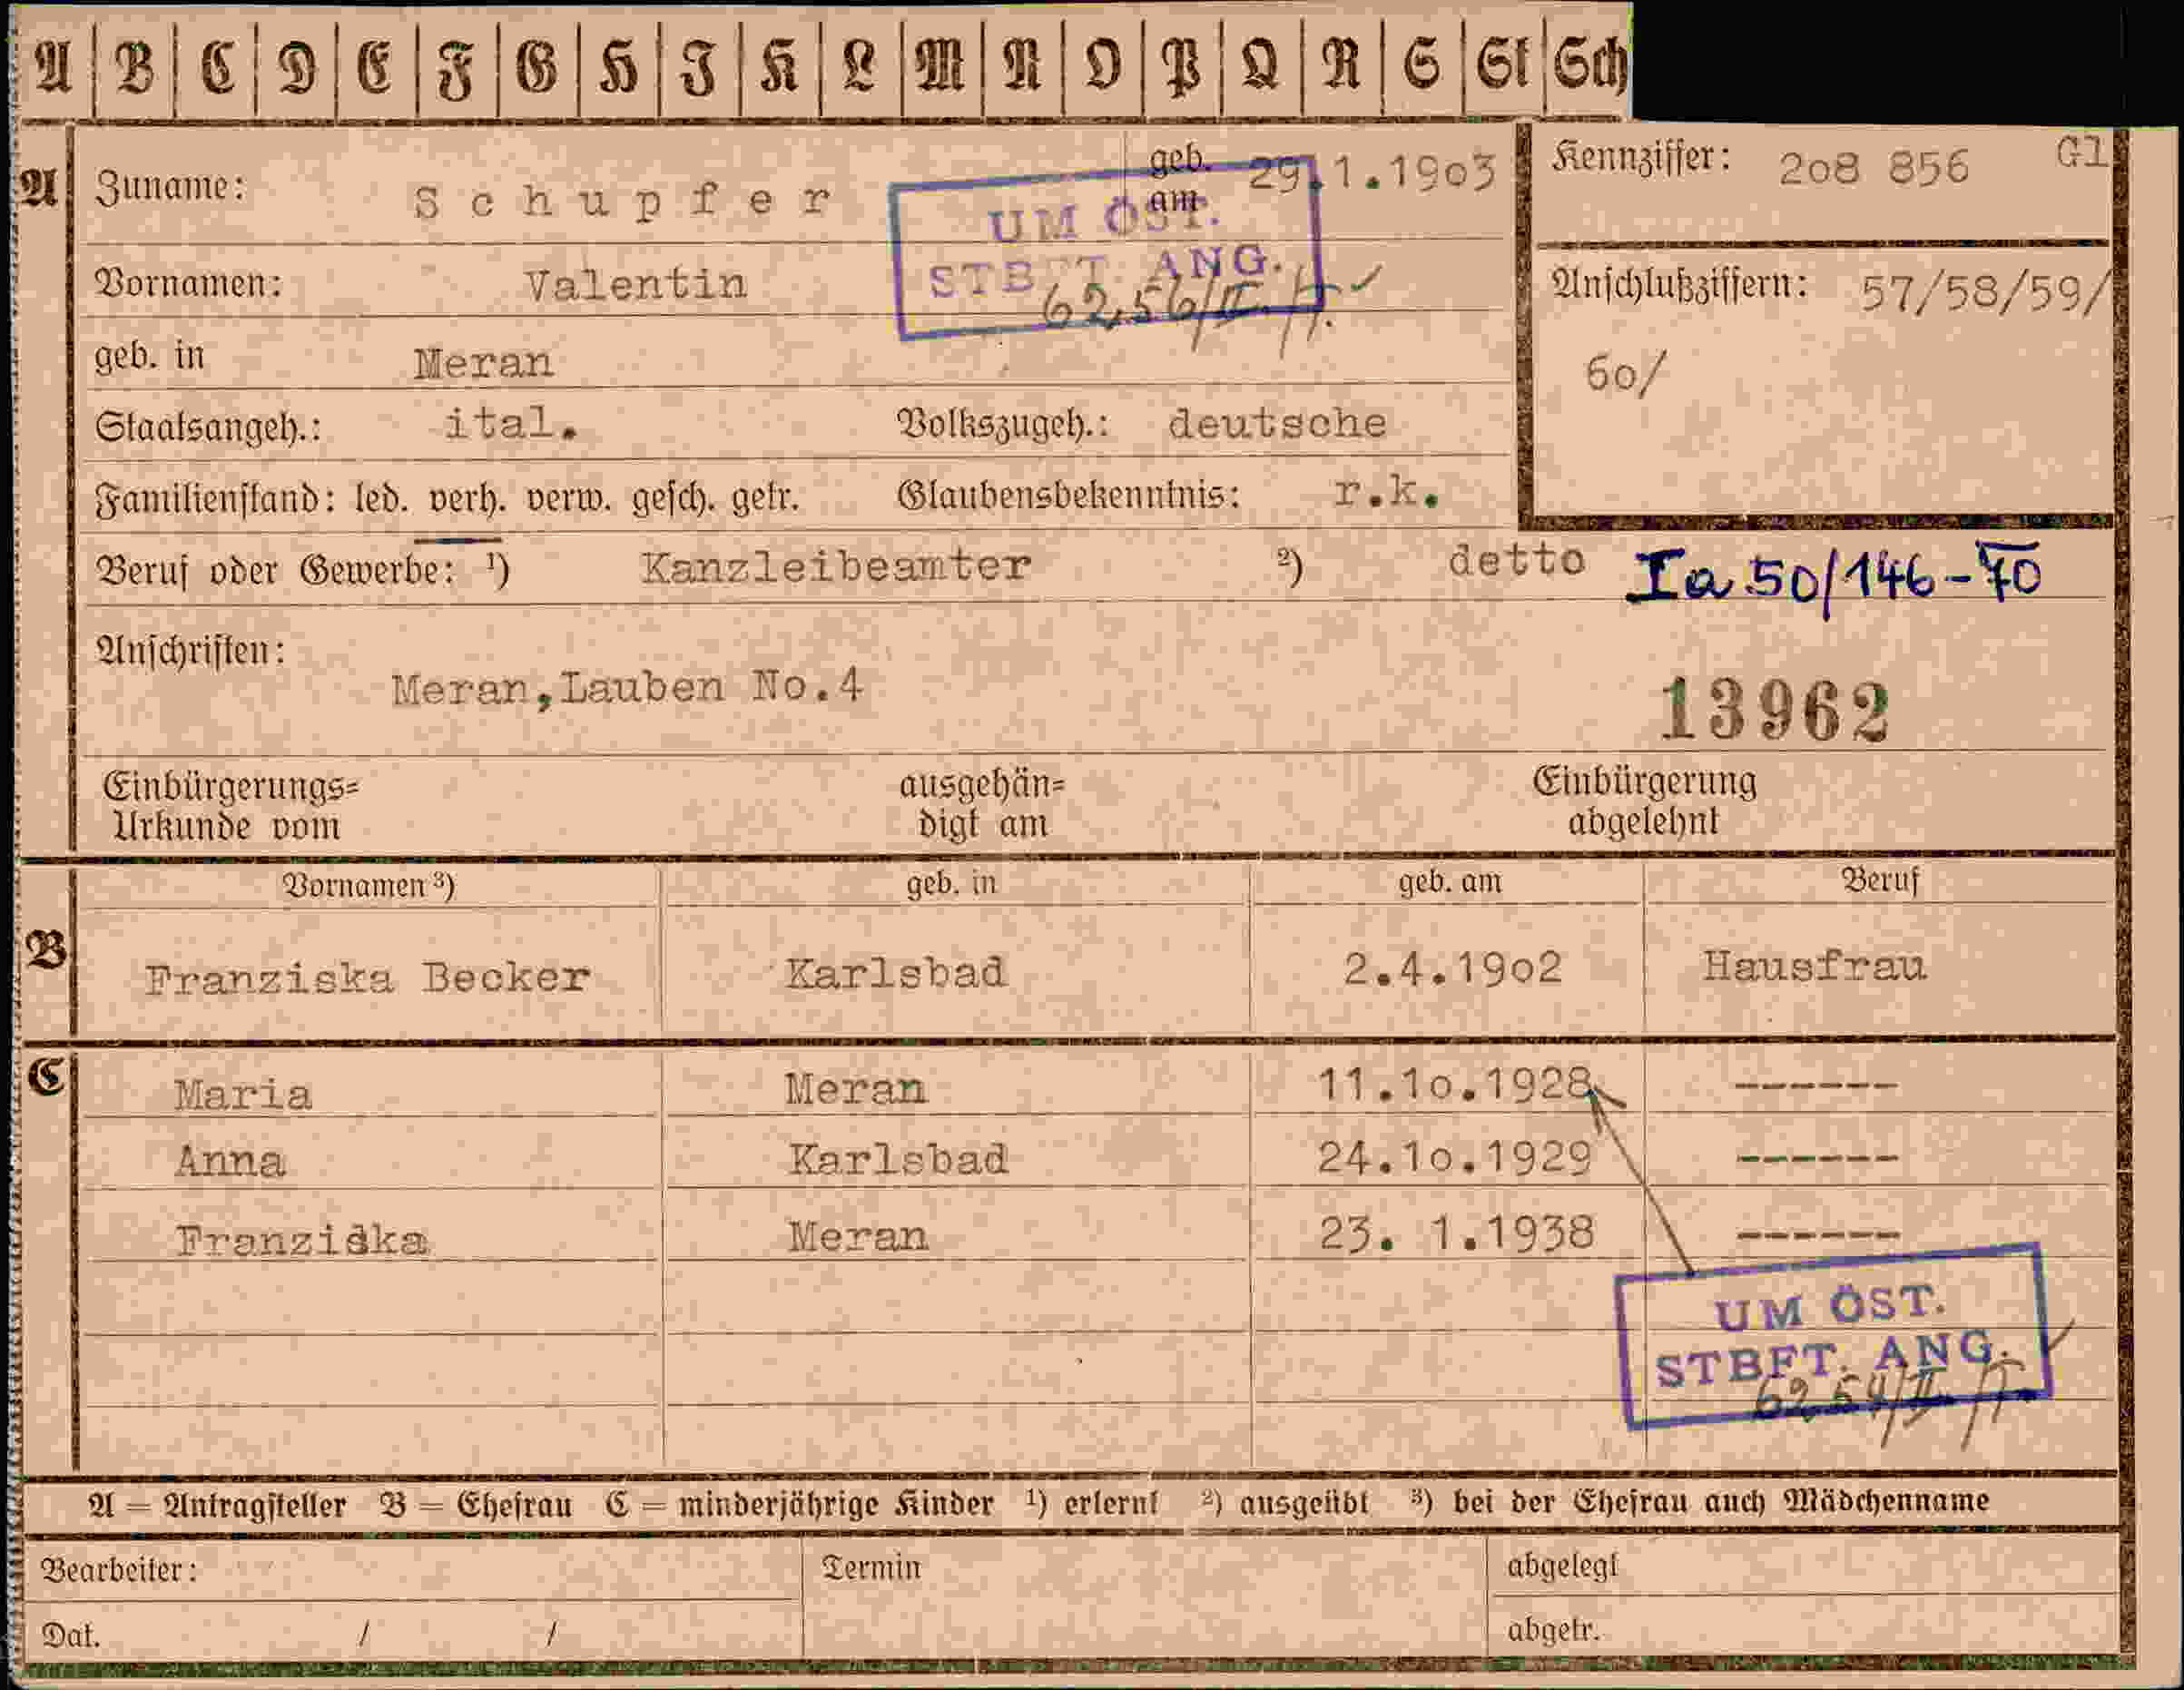 A B C D E F G H I K L M N O P Q R S St Sch
A Zuname: Schupfer geb. am 29.1.1903 Kennziffer: 208 856 Gl
UM ÖST.
STBFT. ANG.
Vornamen: Valentin Anschlußziffern: 57/58/59/
60/
geb. in Meran
Staatsangeh.: ital. Volkszugeh.: deutsche
Familienstand: led. verh. verw. gesch. getr. Glaubensbekenntnis: r.k.
Beruf oder Gewerbe: ¹) Kanzleibeamter ²) detto Ia 50/146-70
Anschriften:
Meran,Lauben No.4
13962
Einbürgerungs= ausgehän= Einbürgerung
Urkunde vom digt am abgelehnt
Vornamen ³) geb. in geb. am Beruf
B Franziska Becker Karlsbad 2.4.1902 Hausfrau
C Maria Meran 11.10.1928 ------
Anna Karlsbad 24.10.1929 ------
Franziska Meran 23. 1.1938 ------
UM ÖST.
STBFT. ANG.
A = Antragsteller B = Ehefrau C = minderjährige Kinder ¹) erlernt ²) ausgeübt ³) bei der Ehefrau auch Mädchenname
Bearbeiter: Termin abgelegt
Dat. / / abgetr.